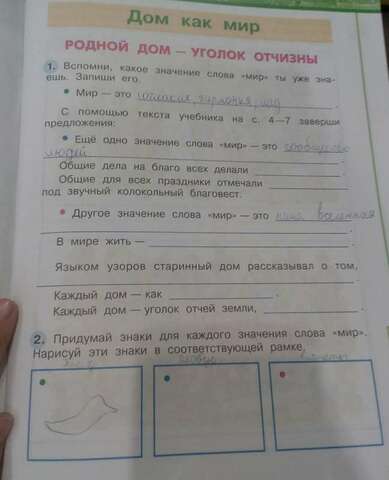 Дом как мир
РОДНОЙ ДОМ — УГОЛОК ОТЧИЗНЫ
1. Вспомни, какое значение слова «мир» ты уже зна-
ешь. Запиши его.
• Мир — это согласие, гармония, лад
С помощью текста учебника на с. 4—7 заверши
предложения:
• Ещё одно значение слова «мир» — это сообщество
людей
Общие дела на благо всех делали
Общие для всех праздники отмечали
под звучный колокольный благовест.
• Другое значение слова «мир» — это вселенная
В мире жить —
Языком узоров старинный дом рассказывал о том,
Каждый дом — как .
Каждый дом — уголок отчей земли, .
2. Придумай знаки для каждого значения слова «мир».
Нарисуй эти знаки в соответствующей рамке.